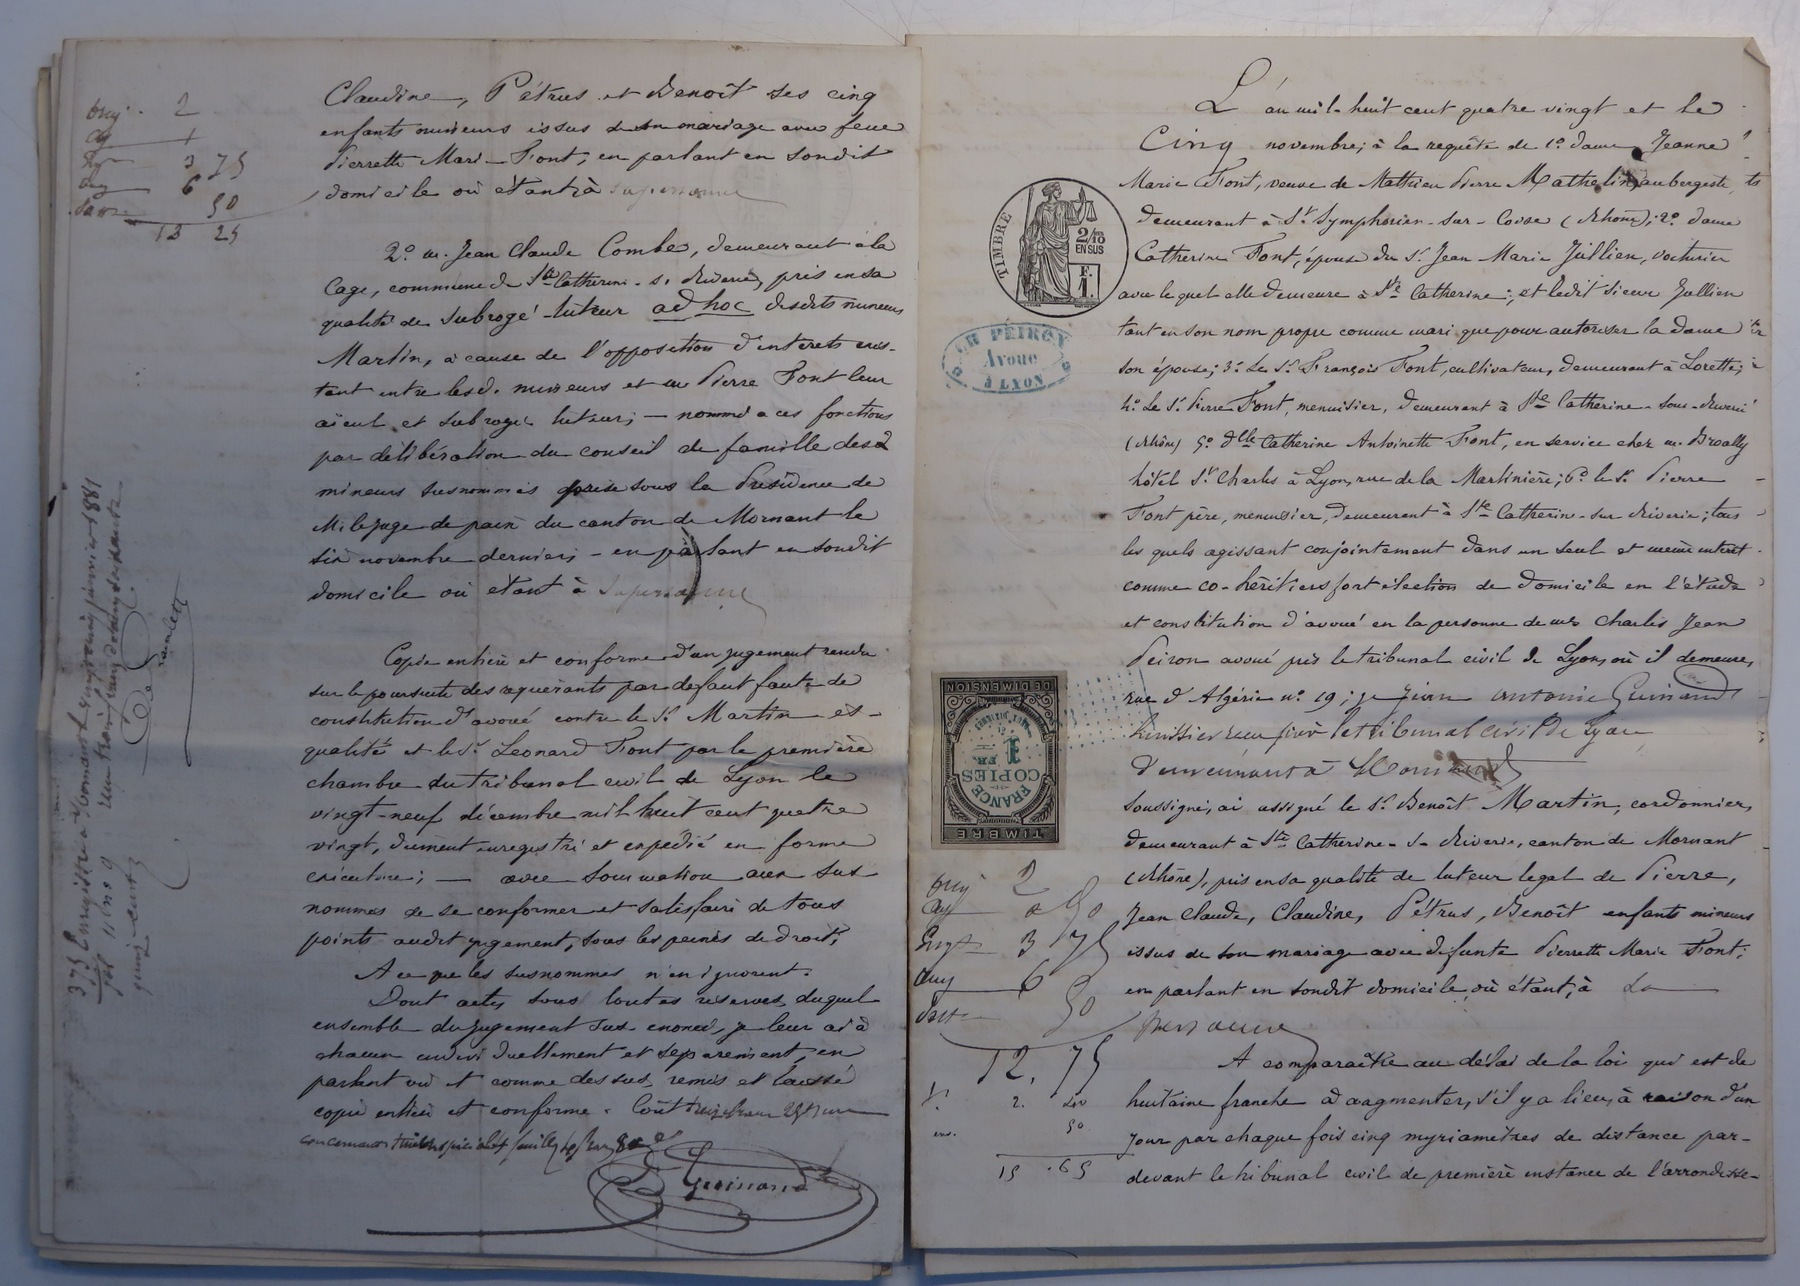 Claudine, Pétrus et Benoît ses cinq
enfants mineurs issus de son mariage avec feue
Pierrette Marie Font, en parlant en son dit
domicile où étant à sa personne
2° M. Jean Claude Combe, demeurant à la
Cage, commune de Ste Catherine s. Riverie, pris en sa
qualité de subrogé-tuteur ad hoc desdits mineurs
Martin, à cause de l'opposition d'interets exis-
tant entre lesd. mineurs et M Pierre Font leur
aïeul et subrogé tuteur; — nommé a ces fonctions
par délibération du conseil de famille des
mineurs susnommés prise sous la Présidence de
M. le juge de paix du canton de Mornant le
six novembre dernier; - en parlant en son dit
domicile où étant à sa personne
Copie entière et conforme d'un jugement rendu
sur la poursuite des requérants par defaut faute de
constitution d'avoué contre le Sr Martin ès-
qualité et le Sr Leonard Font par la première
chambre du tribunal civil de Lyon le
vingt-neuf décembre mil huit cent quatre
vingt, dûment enregistré et expédié en forme
exécutoire; — avec sommation aux sus
nommés de se conformer et satisfaire de tous
points audit jugement, sous les peines de droit;
A ce que les susnommés n'en ignorent.
Dont acte, sous toutes reserves, duquel
ensemble du jugement sus enoncé, je leur ai à
chacun individuellement et séparement, en
parlant où et comme dessus, remis et laissé
copie entière et conforme. Coût treize francs 25
Guinand
2
1
3 75
6
50
13 25
Enregistré à Mornant le janvier 1881
L'an mil huit cent quatre vingt et le
Cinq novembre; à la requête de 1° dame Jeanne
Marie Font, veuve de Mathieu Pierre Mathelin, aubergiste,
demeurant à St Symphorien-sur-Coise (Rhône); 2° dame
Catherine Font, épouse du Sr Jean Marie Jullien, voiturier
avec lequel elle demeure à Ste Catherine; et ledit sieur Jullien
tant en son nom propre comme mari que pour autoriser la dame
son épouse; 3° Le Sr François Font, cultivateur, demeurant à Lorette;
4° Le Sr Pierre Font, menuisier, demeurant à Ste Catherine-sous-Riverie
(Rhône) 5° Dlle Catherine Antoinette Font, en service chez M. Broally
hôtel St Charles à Lyon, rue de la Martinière; 6° le Sr Pierre
Font père, menuisier, demeurant à Ste Catherine-sur-Riverie; tous
les quels agissant conjointement dans un seul et même intérêt
comme co-héritiers font élection de domicile en l'étude
et constitution d'avoué en la personne de Me Charles Jean
Peiron avoué près le tribunal civil de Lyon, où il demeure,
rue d'Algérie n° 19; je Jean Antoine Guinand
huissier reçu près le tribunal civil de Lyon
demeurant à Mornant
soussigné, ai assigné le Sr Benoît Martin, cordonnier,
demeurant à Ste Catherine-s-Riverie, canton de Mornant
(Rhône), pris en sa qualité de tuteur legal de Pierre,
Jean Claude, Claudine, Pétrus, Benoît enfants mineurs
issus de son mariage avec défunte Pierrette Marie Font;
en parlant en son dit domicile où étant, à sa
personne
A comparaître au délai de la loi qui est de
huitaine franche à augmenter, s'il y a lieu, à raison d'un
jour par chaque fois cinq myriamètres de distance par-
devant le tribunal civil de première instance de l'arrondisse-
TIMBRE
2/10
EN SUS
F.
1.
CH PEIRON
Avoué
À LYON
DE DIMENSION
1 FR.
COPIES
FRANCE
TIMBRE
2
0 50
3 75
6
50
12. 75
2. 40
50
15 . 65